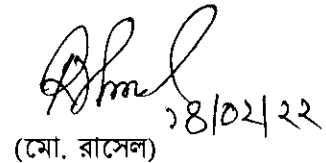 ২৪/০২/২২
(মো. রাসেল)